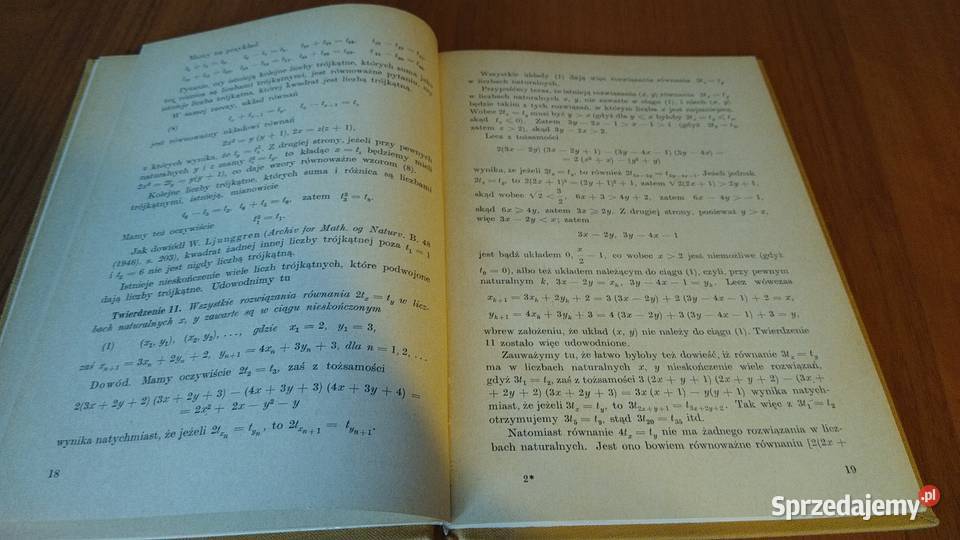 Mamy na przykład
Pytanie, czy istnieją kolejne liczby trójkątne, których suma jako
też różnica są liczbami trójkątnymi, jest równoważne pytaniu, czy
istnieje liczba trójkątna, której kwadrat jest liczbą trójkątną.
W samej rzeczy, układ równań
(8)
jest równoważny układowi równań
2x² = y (y + 1), 2x = z(z + 1),
z których wynika, że Z drugiej strony, jeżeli przy pewnych
naturalnych y i z mamy to kładąc będziemy mieli
= y(y + 1), co daje wzory równoważne wzorom (8).
Kolejne liczby trójkątne, których suma i różnica są liczbami
trójkątnymi, istnieją, mianowicie
t₆ − t₅ = t₃, t₆ + t₅ = t₈, zatem t₃² = t₈.
Mamy też oczywiście
t₁² = t₁.
Jak dowiódł W. Ljunggren (Archiv for Math. og Naturv. B. 48
(1946), s. 203), kwadrat żadnej innej liczby trójkątnej poza t₁ = 1
i = 6 nie jest nigdy liczbą trójkątną.
Istnieje nieskończenie wiele liczb trójkątnych, które podwojone
dają liczby trójkątne. Udowodnimy tu
Twierdzenie 11. Wszystkie rozwiązania równania 2tₓ = t_y w licz-
bach naturalnych x, y zawarte są w ciągu nieskończonym
(1) (x₁, y₁), (x₂, y₂), ..., gdzie x₁ = 2, y₁ = 3,
zaś xₙ₊₁ = 3xₙ + 2yₙ + 2, yₙ₊₁ = 4xₙ + 3yₙ + 3, dla n = 1, 2, ...
Dowód. Mamy oczywiście 2t₂ = t₃, zaś z tożsamości
2(3x + 2y + 2) (3x + 2y + 3) − (4x + 3y + 3) (4x + 3y + 4) =
= 2x² + 2x − y² − y
wynika natychmiast, że jeżeli 2t_{xₙ} = t_{yₙ}, to 2t_{xₙ₊₁} = t_{yₙ₊₁}.
18
Wszystkie układy (1) dają więc rozwiązania równania 2tₓ = t_y
w liczbach naturalnych.
Przypuśćmy teraz, że istnieją rozwiązania (x, y) równania 2tₓ = t_y
w liczbach naturalnych x, y, nie zawarte w ciągu (1), i niech (x, y)
będzie takim z tych rozwiązań, w którym liczba x jest najmniejszą.
Wobec 2tₓ = t_y musi być y > x (gdyż dla y ≤ x byłoby
skąd tₓ ≤ 0). Zatem 3y − 2x − 1 > x − 1 > 1 (gdyż
zatem x > 2), skąd 3y − 2x > 2.
Lecz z tożsamości
2(3x − 2y) (3x − 2y + 1) − (3y − 4x − 1) (3y − 4x) =
= 2 (x² + x) − (y² + y)
wynika, że jeżeli 2tₓ = t_y, to również 2t₃ₓ₋₂y = t₃y₋₄ₓ₋₁. Jeżeli jednak
2tₓ = t_y, to 2(2x + 1)² = (2y + 1)² + 1, zatem √2(2x + 1) > 2y + 1,
skąd wobec √2 < 3/2, 6x + 3 > 4y + 2, zatem 6x − 4y > − 1,
skąd 6x ≥ 4y, zatem 3x ≥ 2y. Z drugiej strony, ponieważ y > x,
więc 3x − 2y < x; zatem
3x − 2y, 3y − 4x − 1
jest bądź układem 0, − 1, co wobec x > 2 jest niemożliwe (gdyż
t₀ = 0), albo też układem należącym do ciągu (1), czyli, przy pewnym
naturalnym k, 3x − 2y = xₖ, 3y − 4x − 1 = yₖ. Lecz wówczas
xₖ₊₁ = 3xₖ + 2yₖ + 2 = 3 (3x − 2y) + 2 (3y − 4x − 1) + 2 = x,
yₖ₊₁ = 4xₖ + 3yₖ + 3 = 4 (3x − 2y) + 3 (3y − 4x − 1) + 3 = y,
wbrew założeniu, że układ (x, y) nie należy do ciągu (1). Twierdzenie
11 zostało więc udowodnione.
Zauważymy tu, że łatwo byłoby też dowieść, iż równanie 3tₓ = t_y
ma w liczbach naturalnych x, y nieskończenie wiele rozwiązań,
gdyż 3t₁ = t₂, zaś z tożsamości 3 (2x + y + 1) (2x + y + 2) − (3x +
+ 2y + 2) (3x + 2y + 3) = 3x (x + 1) − y(y + 1) wynika natych-
miast, że jeżeli 3tₓ = t_y, to 3t₂ₓ₊y₊₁ = t₃ₓ₊₂y₊₂. Tak więc z 3t₁ = t₂
otrzymujemy 3t₅ = t₉, stąd 3t₂₀ = t₃₅ itd.
Natomiast równanie 4tₓ = t_y nie ma żadnego rozwiązania w licz-
bach naturalnych. Jest ono bowiem równoważne równaniu [2(2x +
2*
19
Sprzedajemy.pl